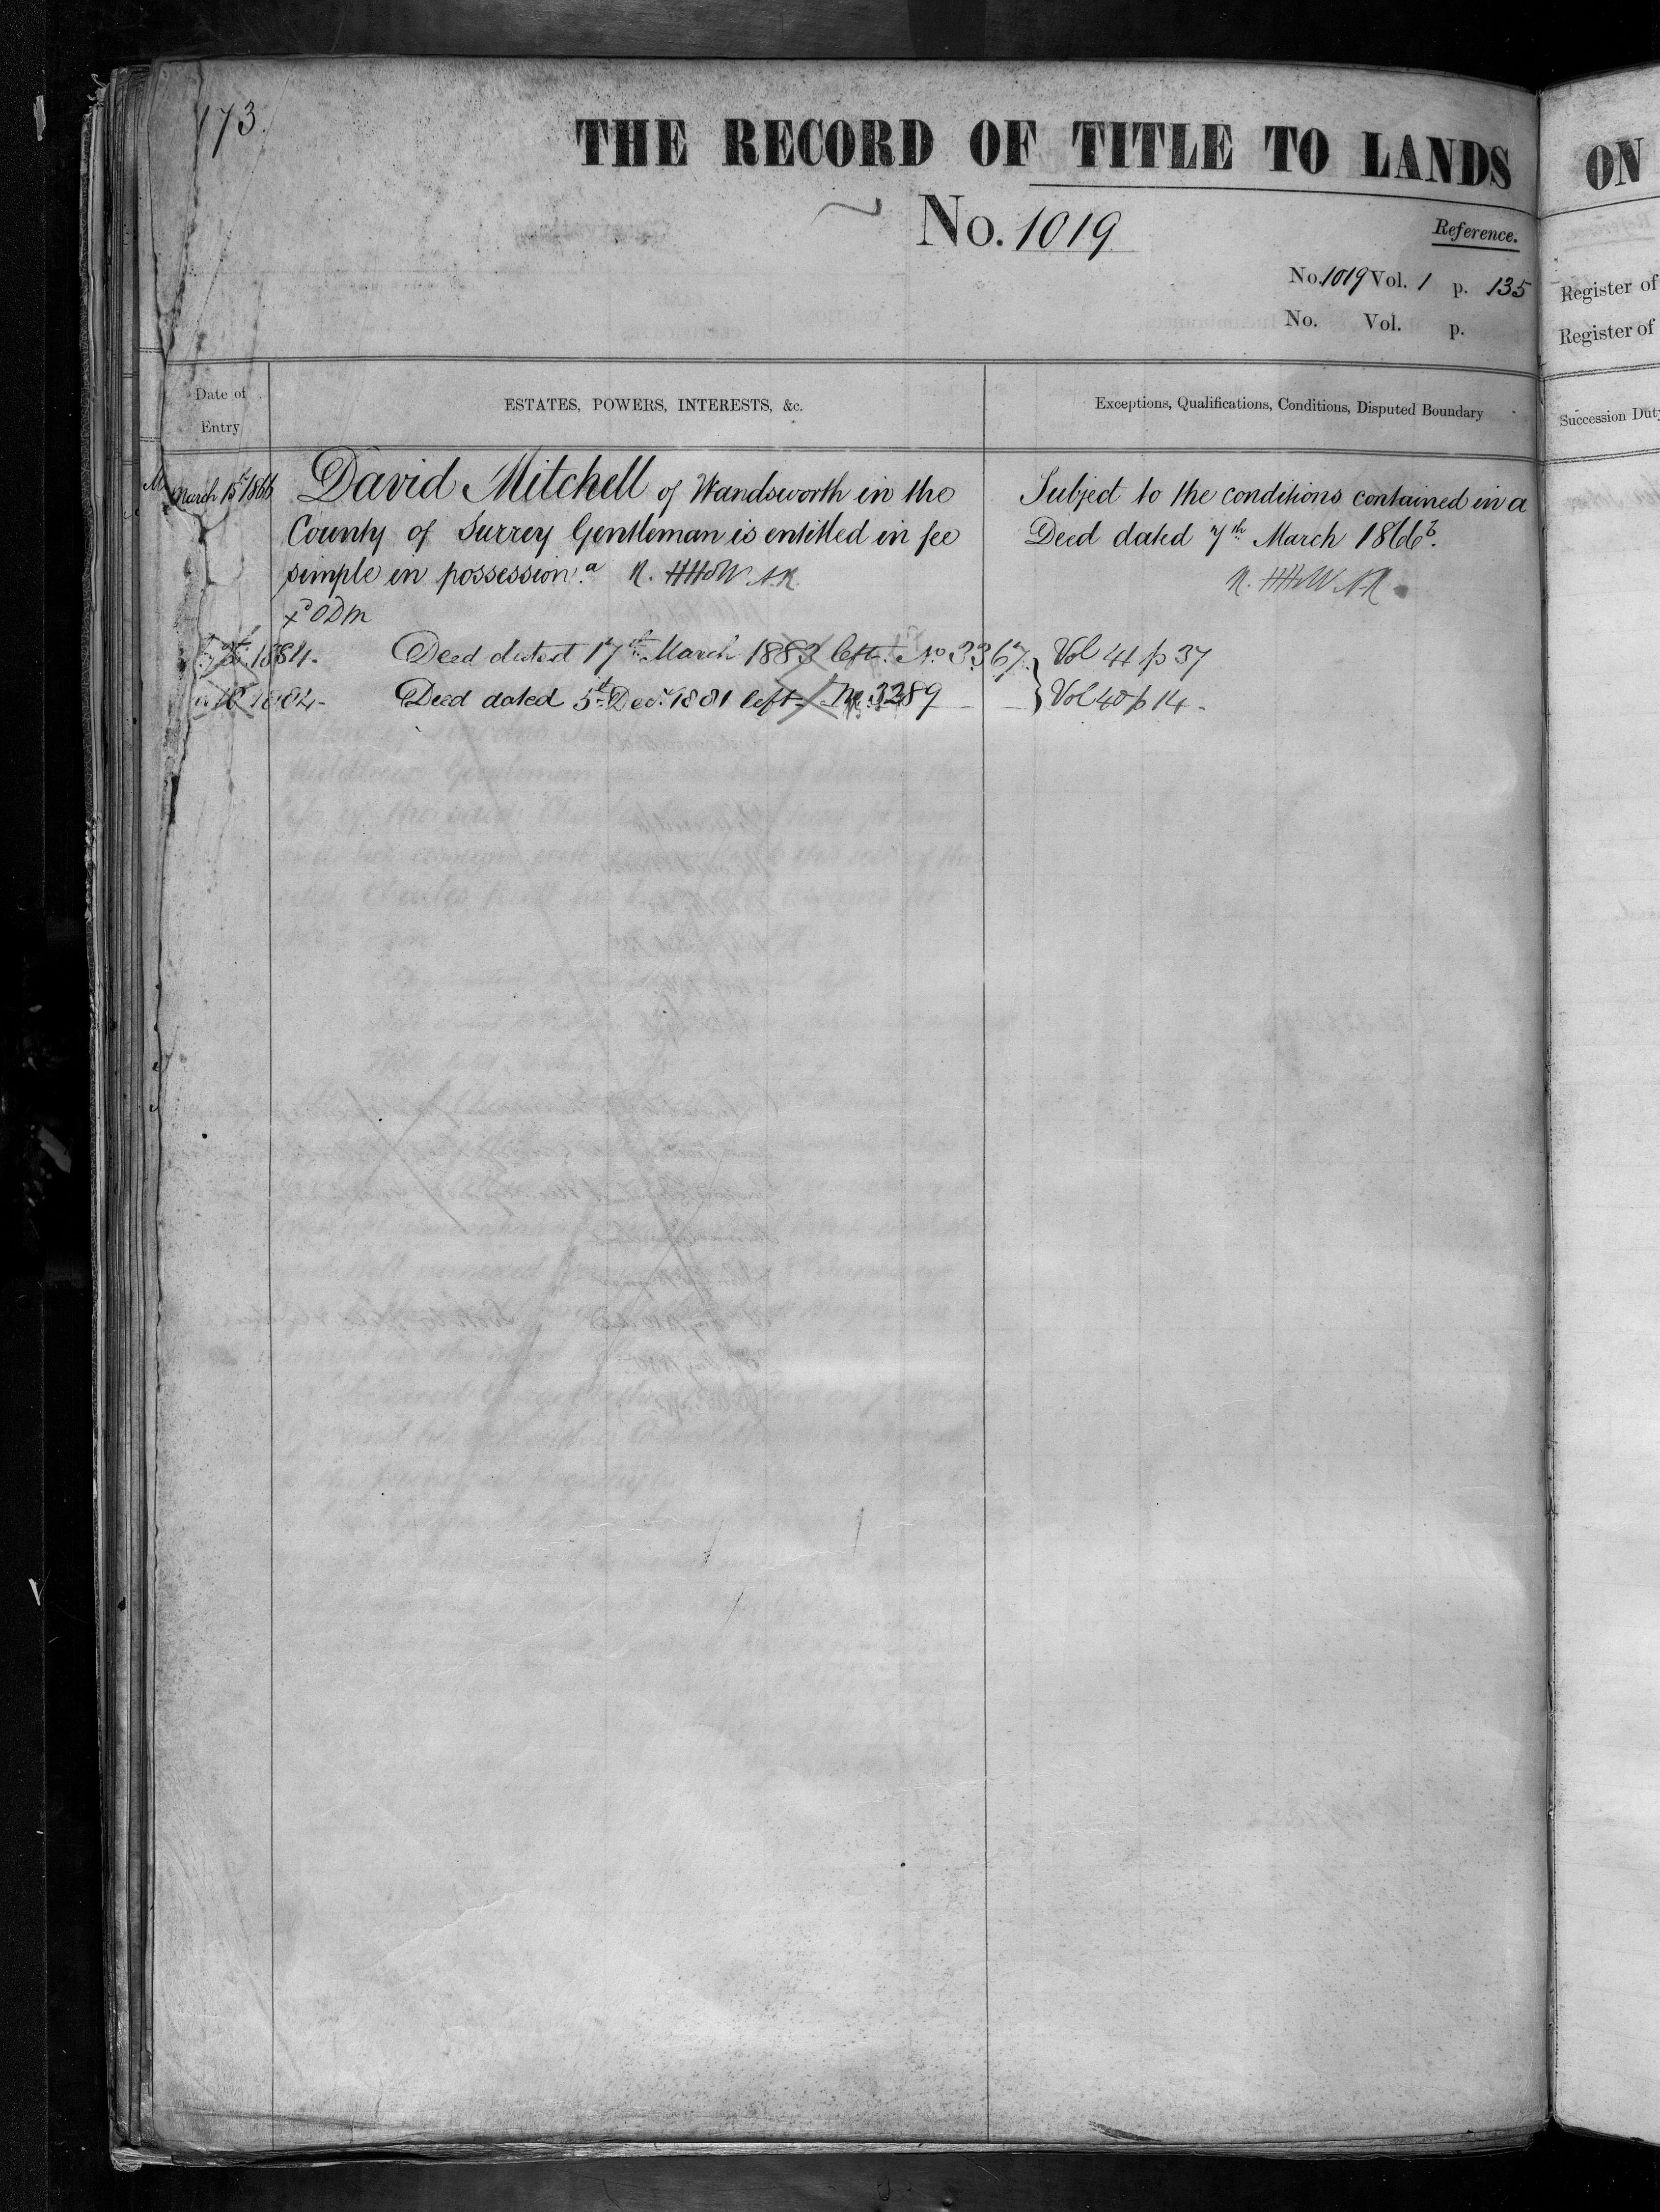 173.
THE RECORD OF TITLE TO LANDS
No. 1019
Reference.
No. 1019 Vol. 1 p. 135
No. Vol. p.
Date of Entry
ESTATES, POWERS, INTERESTS, &c.
Exceptions, Qualifications, Conditions, Disputed Boundary
March 15th 1866
David Mitchell of Wandsworth in the
County of Surrey Gentleman is entitled in fee
simple in possession.a
Subject to the conditions contained in a
Deed dated 7th March 1866b.
1884. Deed dated 17th March 1883 left. No 3367. Vol 41 p 37
1884 - Deed dated 5th Decr 1881 left No. 3289 Vol 40 p 14 -
ON
Register of
Register of
Succession Duty